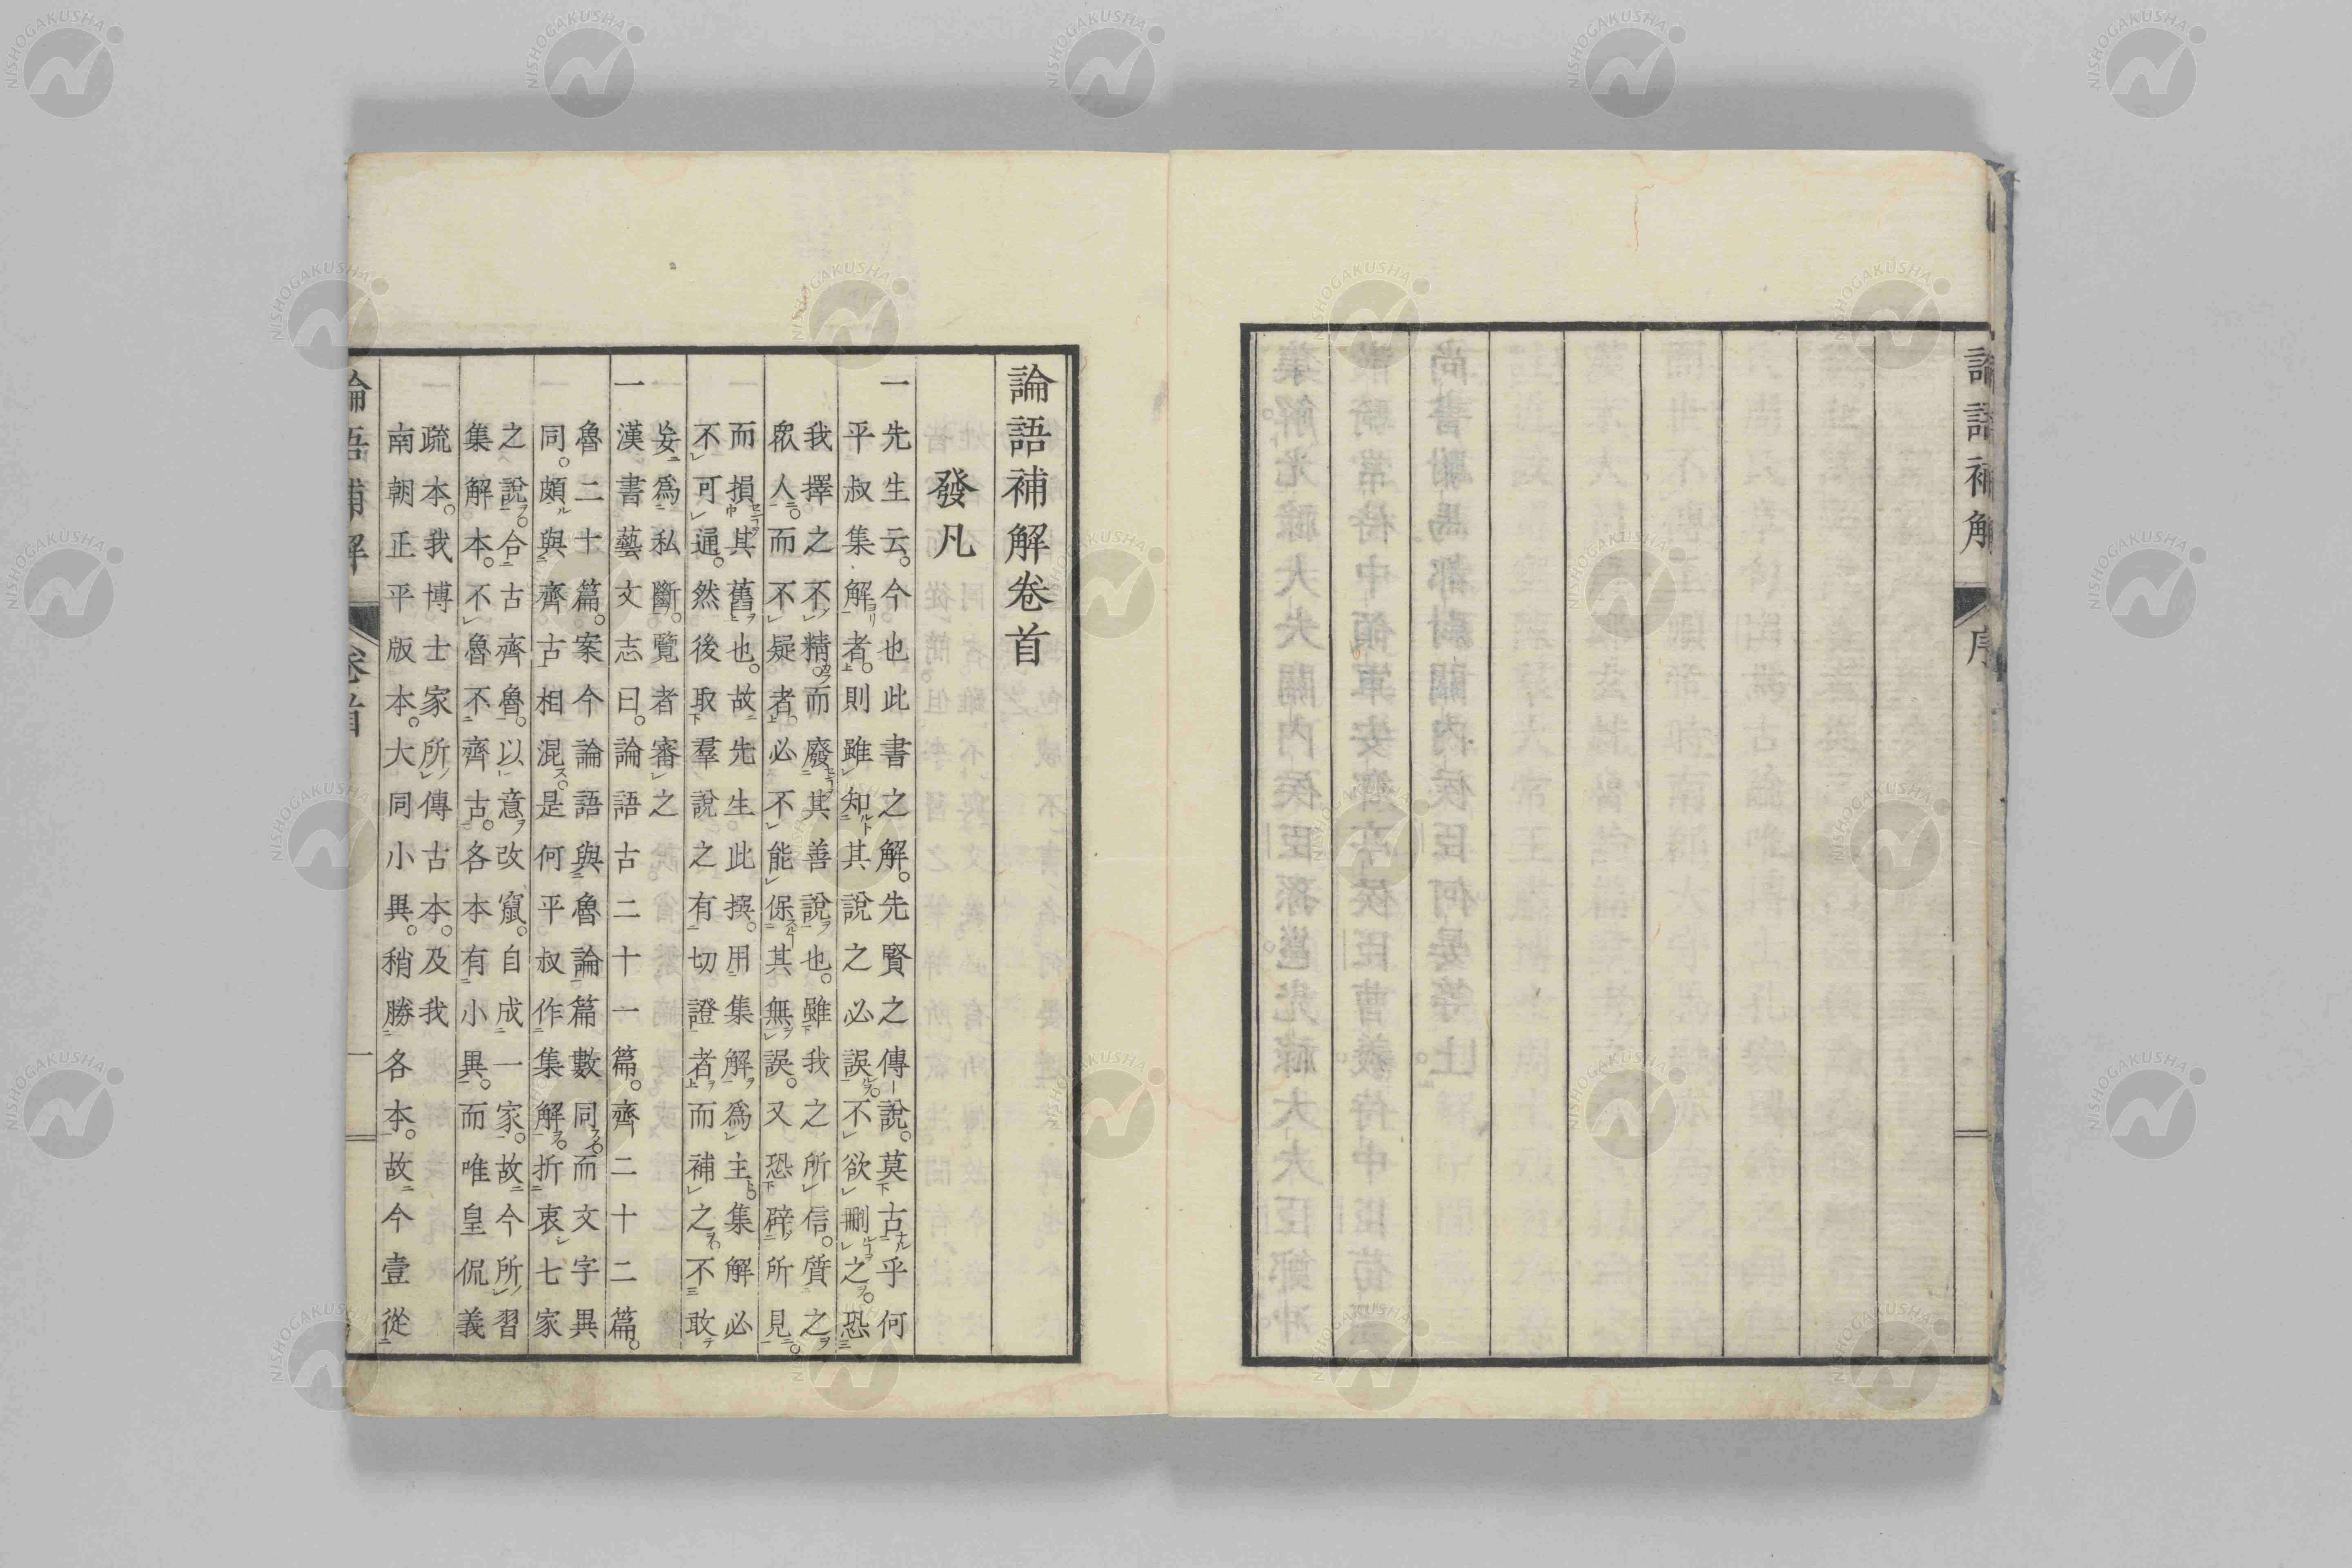 論語補解
序
論語補解卷首
發凡
一先生云。今也此書之解。先賢之傳說。莫古乎何
平叔集解者。則雖知其說之必誤。不欲刪之。恐
我擇之不精。而廢其善說也。雖我之所信。質之
眾人。而不疑者。必不能保其無誤。又恐辟所見
而損其舊也。故先生此撰。用集解爲主。集解必
不可通。然後取羣說之有切證者。而補之。不敢
妄爲私斷。覽者審之
一漢書藝文志曰。論語古二十一篇。齊二十二篇。
魯二十篇。案今論語與魯論篇數同。而文字異
同。頗與齊古相混。是何平叔作集解。折衷七家
之說。合古齊魯。以意改竄。自成一家。故今所習
集解本。不魯不齊古。各本有小異。而唯皇侃義
疏本。我博士家所傳古本。及我
南朝正平版本。大同小異。稍勝各本。故今壹從
論語補解
卷首
一
NISHOGAKUSHA